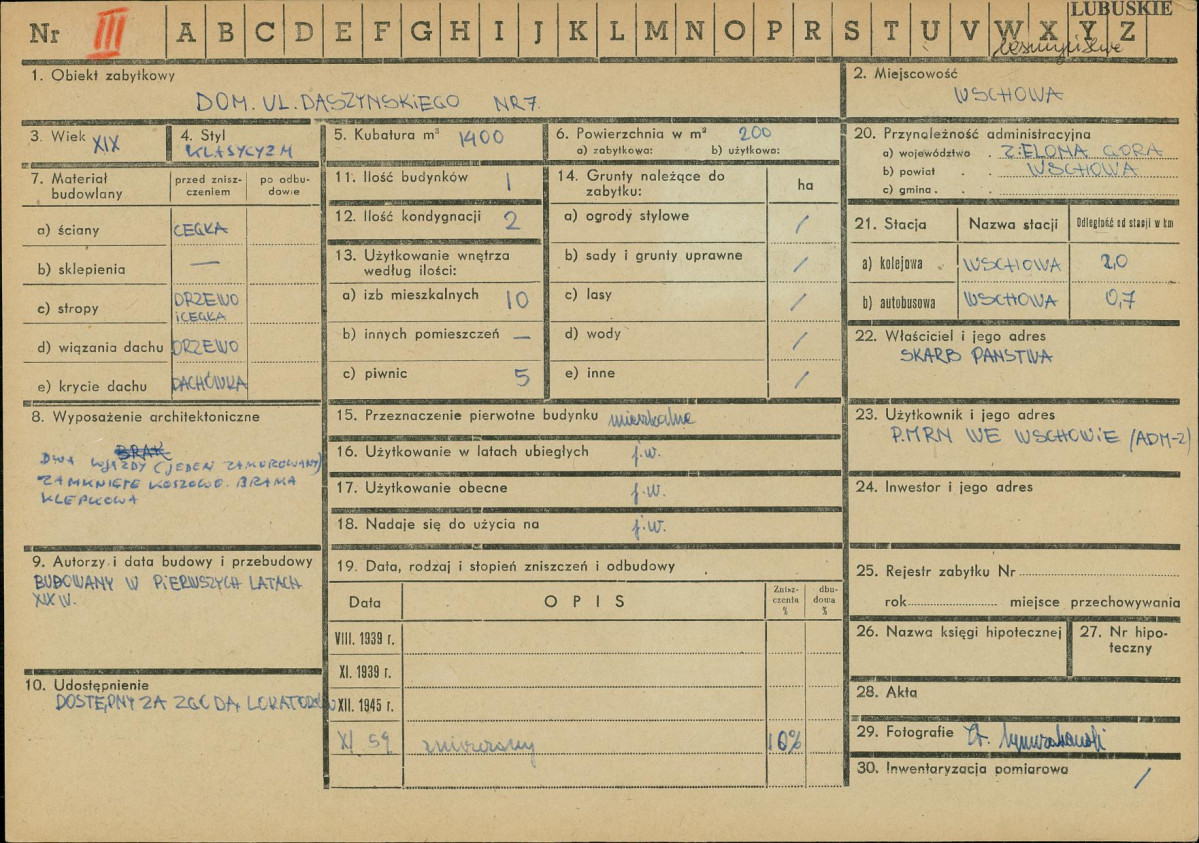 LUBUSKIE
Nr III A B C D E F G H I J K L M N O P R S T U V W X Y Z
1. Obiekt zabytkowy
DOM. UL. DASZYNSKIEGO NR 7.
2. Miejscowość
WSCHOWA
3. Wiek XIX
4. Styl
KLASYCYZM
5. Kubatura m³ 1400
6. Powierzchnia w m² 200
a) zabytkowa: b) użytkowa:
7. Materiał budowlany
przed znisz-
czeniem
po odbu-
dowie
a) ściany CEGŁA
b) sklepienia —
c) stropy DRZEWO
i CEGŁA
d) wiązania dachu DRZEWO
e) krycie dachu DACHÓWKA
8. Wyposażenie architektoniczne
BRAK
DWA WJAZDY (JEDEN ZAMUROWANY)
ZAMKNIĘTE KOSZOWO. BRAMA
KLEPKOWA
9. Autorzy i data budowy i przebudowy
BUDOWANY W PIERWSZYCH LATACH
XIX W.
10. Udostępnienie
DOSTĘPNY ZA ZGODĄ LOKATORÓW
11. Ilość budynków 1
12. Ilość kondygnacji 2
13. Użytkowanie wnętrza
według ilości:
a) izb mieszkalnych 10
b) innych pomieszczeń —
c) piwnic 5
14. Grunty należące do
zabytku:
ha
a) ogrody stylowe /
b) sady i grunty uprawne /
c) lasy /
d) wody /
e) inne /
15. Przeznaczenie pierwotne budynku mieszkalne
16. Użytkowanie w latach ubiegłych j.w.
17. Użytkowanie obecne j.w.
18. Nadaje się do użycia na j.w.
19. Data, rodzaj i stopień zniszczeń i odbudowy
Data OPIS
Znisz-
czenia
%
dbu-
dowa
%
VIII. 1939 r.
XI. 1939 r.
XII. 1945 r.
XI 59 10%
20. Przynależność administracyjna
a) województwo . ZIELONA GÓRA
b) powiat . . WSCHOWA
c) gmina . .
21. Stacja Nazwa stacji Odległość od stacji w km
a) kolejowa WSCHOWA 2,0
b) autobusowa WSCHOWA 0,7
22. Właściciel i jego adres
SKARB PAŃSTWA
23. Użytkownik i jego adres
P.MRN WE WSCHOWIE (ADM-2)
24. Inwestor i jego adres
25. Rejestr zabytku Nr
rok miejsce przechowywania
26. Nazwa księgi hipotecznej
27. Nr hipo-
teczny
28. Akta
29. Fotografie
30. Inwentaryzacja pomiarowa /